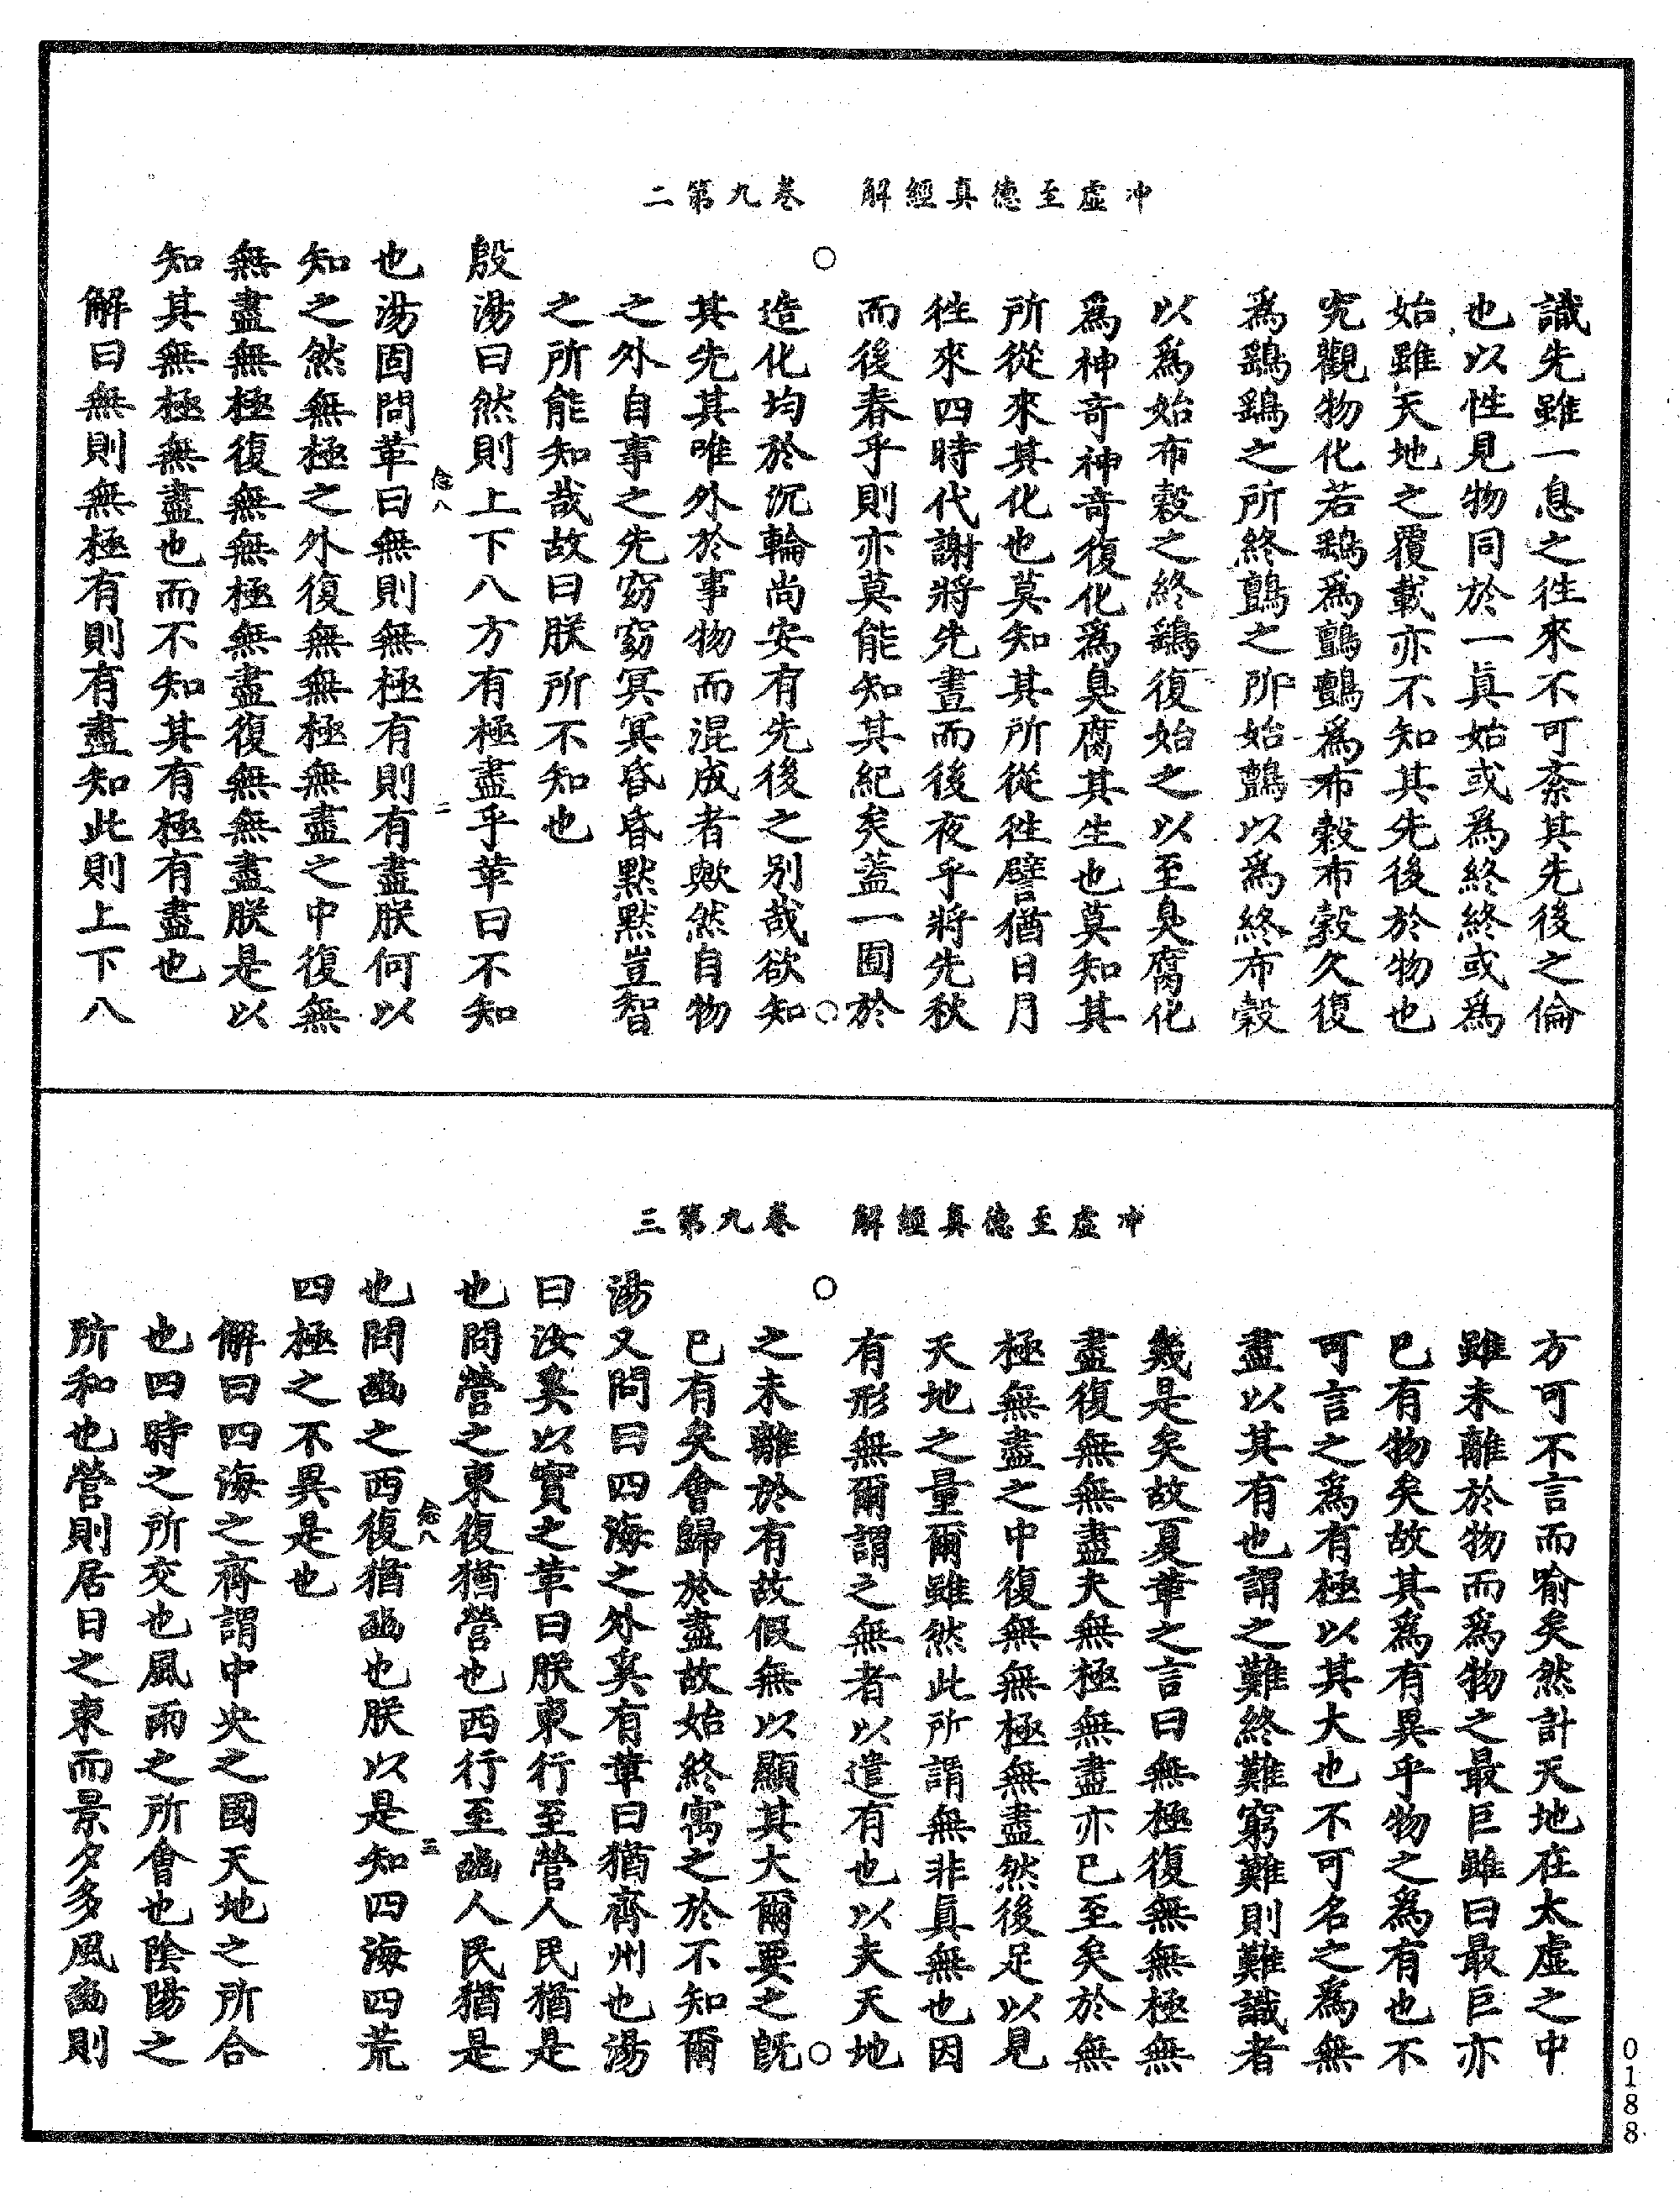 冲虛至德真經解　卷九第二
識先雖一息之徃來不可紊其先後之倫
也以性見物同於一真始或爲終終或爲
始雖天地之覆載亦不知其先後於物也
究觀物化若鷂爲鸇鸇爲布穀布穀久復
爲鷂鷂之所終鸇之所始鸇以爲終布穀
以爲始布穀之終鷂復始之以至臭腐化
爲神奇神奇復化爲臭腐其生也莫知其
所從來其化也莫知其所從徃譬猶日月
徃來四時代謝將先晝而後夜乎將先秋
而後春乎則亦莫能知其紀矣蓋一囿於
造化均於沉輪尚安有先後之别哉欲知
其先其唯外於事物而混成者歟然自物
之外自事之先窈窈冥冥昏昏默默豈智
之所能知哉故曰朕所不知也
殷湯曰然則上下八方有極盡乎革曰不知
也湯固問革曰無則無極有則有盡朕何以
知之然無極之外復無無極無盡之中復無
無盡無極復無無極無盡復無無盡朕是以
知其無極無盡也而不知其有極有盡也
解曰無則無極有則有盡知此則上下八
念八
二
冲虛至德真經解　卷九第三
方可不言而喻矣然計天地在太虛之中
雖未離於物而爲物之最巨雖曰最巨亦
已有物矣故其爲有異乎物之爲有也不
可言之爲有極以其大也不可名之爲無
盡以其有也謂之難終難窮難則難識者
幾是矣故夏革之言曰無極復無無極無
盡復無無盡夫無極無盡亦已至矣於無
極無盡之中復無無極無盡然後足以見
天地之量爾雖然此所謂無非眞無也因
有形無爾謂之無者以遣有也以夫天地
之未離於有故假無以顯其大爾要之旣
已有矣會歸於盡故始終寓之於不知爾
湯又問曰四海之外奚有革曰猶齊州也湯
曰汝奚以實之革曰朕東行至營人民猶是
也問營之東復猶營也西行至豳人民猶是
也問豳之西復猶豳也朕以是知四海四荒
四極之不異是也
解曰四海之齊謂中央之國天地之所合
也四時之所交也風雨之所會也陰陽之
所和也營則居日之東而景夕多風豳則
念八
三
0188